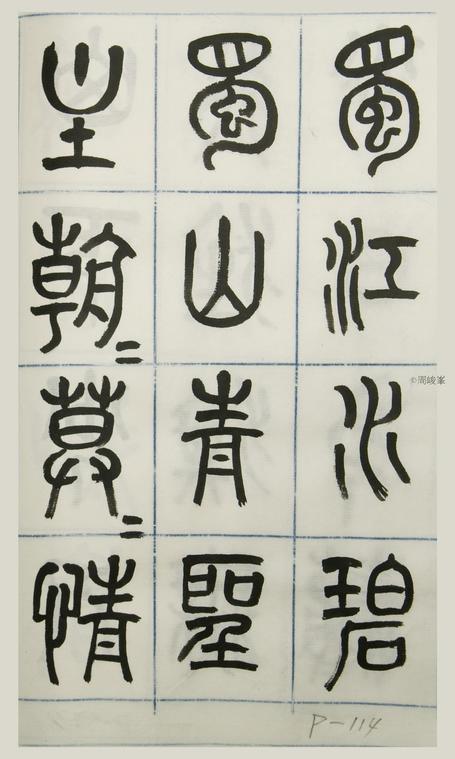 蜀江水碧
蜀山青聖
主朝〻莫〻情
©周峻峯
P-114